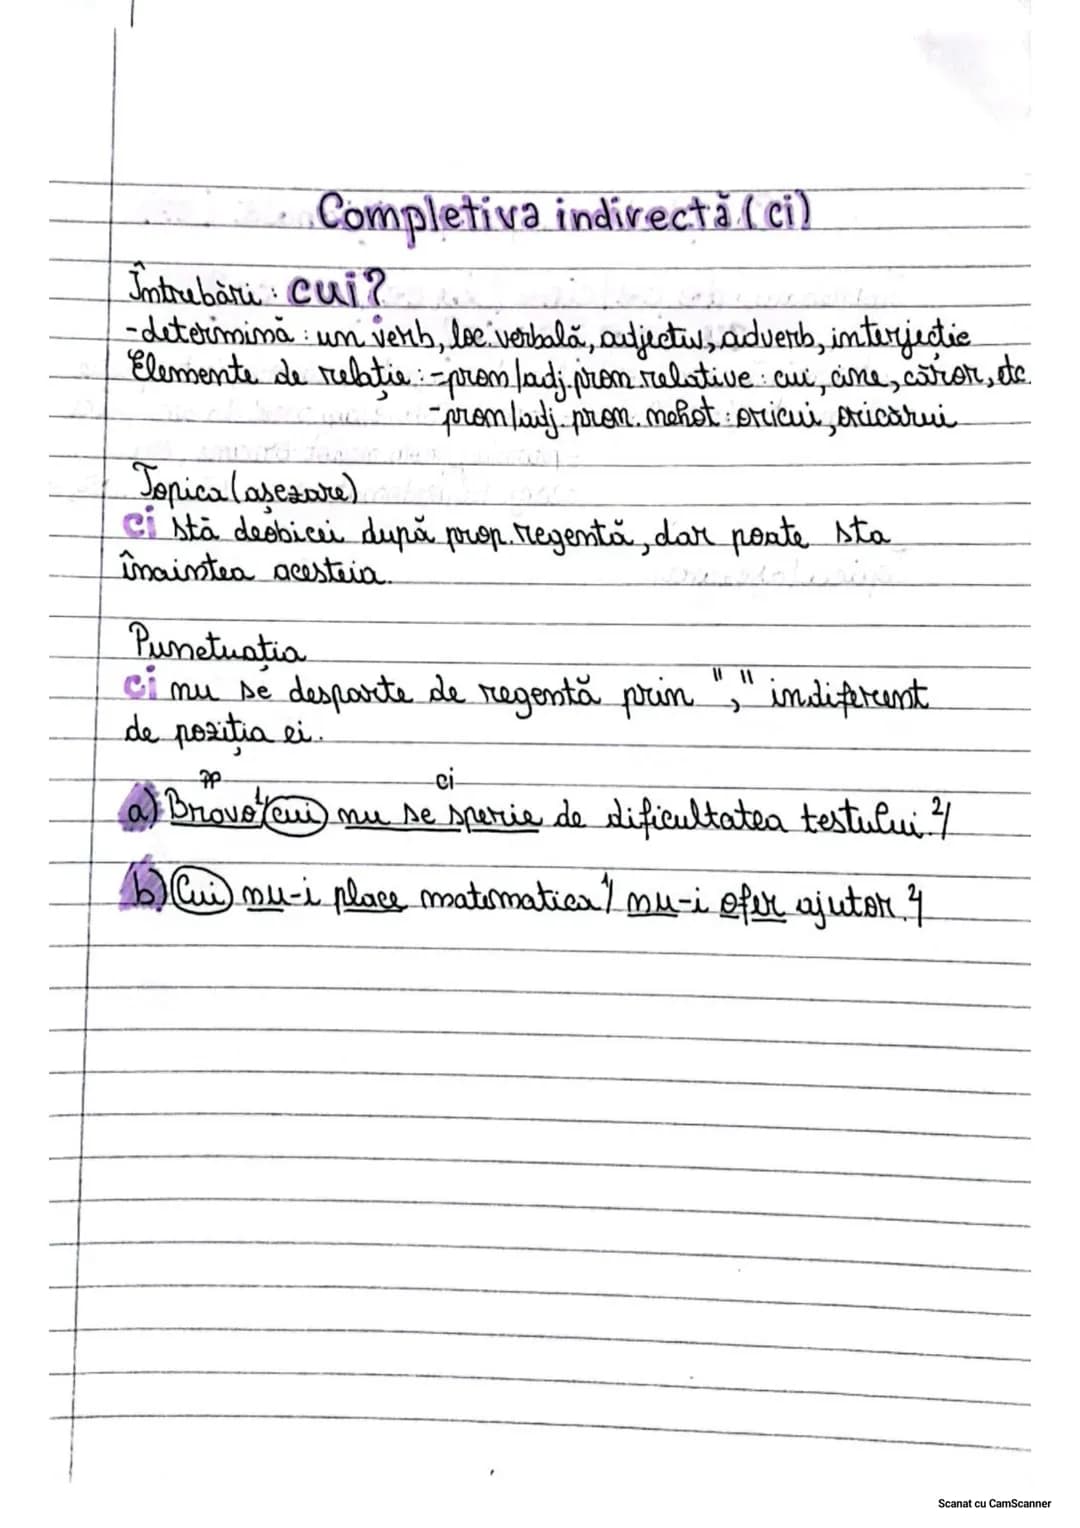 Completiva indirectă (ci)
Întrebări: cui?
-determină: un verb, loc. verbală, adjectiv, adverb, interjecție
Elemente de relație: -pron/adj. pron relative: cui, cine, căror, etc.
-pron/adj. pron. nehot: oricui, oricărui
Topica (așezare)
ci stă deobicei după prop. regentă, dar poate sta
înaintea acesteia.
Punctuația
ci nu se desparte de regentă prin "," indiferent
de poziția ei.
pp ci
a) Bravo 1/ cui nu se sperie de dificultatea testului. 2/
b) Cui nu-i place matematica 1/ nu-i ofer ajutor. 2/
Scanat cu CamScanner